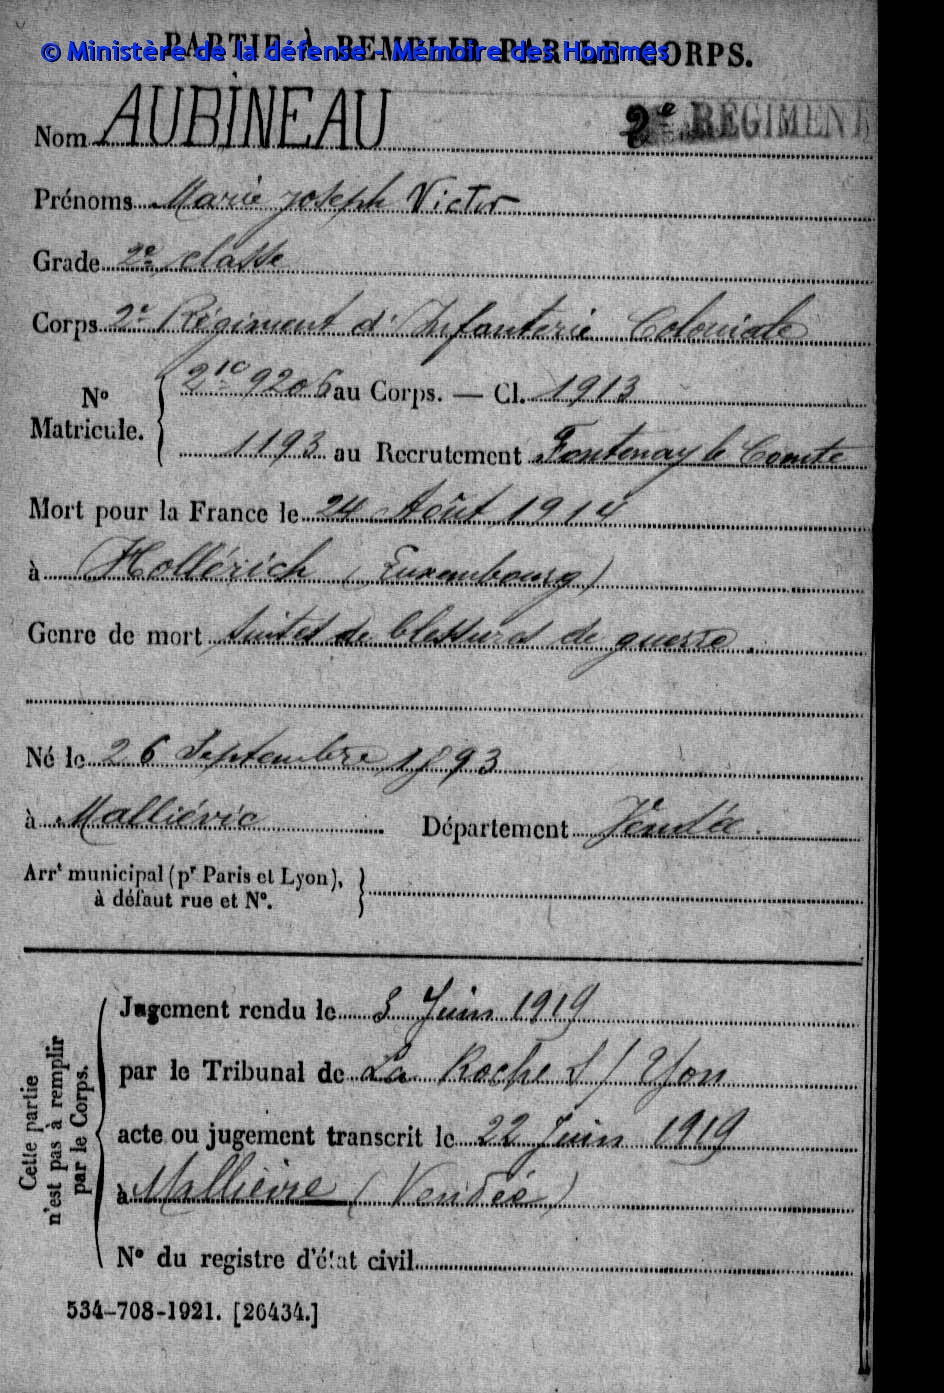 PARTIE À REMPLIR PAR LE CORPS.
© Ministère de la défense - Mémoire des Hommes
2e RÉGIMENT
Nom AUBINEAU
Prénoms Marie Joseph Victor
Grade 2e classe
Corps 2e Régiment d'Infanterie Coloniale
No Matricule. 9206 au Corps. — Cl. 1913
1193 au Recrutement Fontenay le Comte
Mort pour la France le 24 Août 1914
à Hollérich (Luxembourg)
Genre de mort suites de blessures de guerre.
Né le 26 Septembre 1893
à Malliévre Département Vendée.
Arrt municipal (pr Paris et Lyon),
à défaut rue et No.
Cette partie
n'est pas à remplir
par le Corps.
Jugement rendu le 3 Juin 1919
par le Tribunal de La Roche S/Yon
acte ou jugement transcrit le 22 Juin 1919
à Mallievre (Vendée)
No du registre d'état civil
534-708-1921. [26434.]